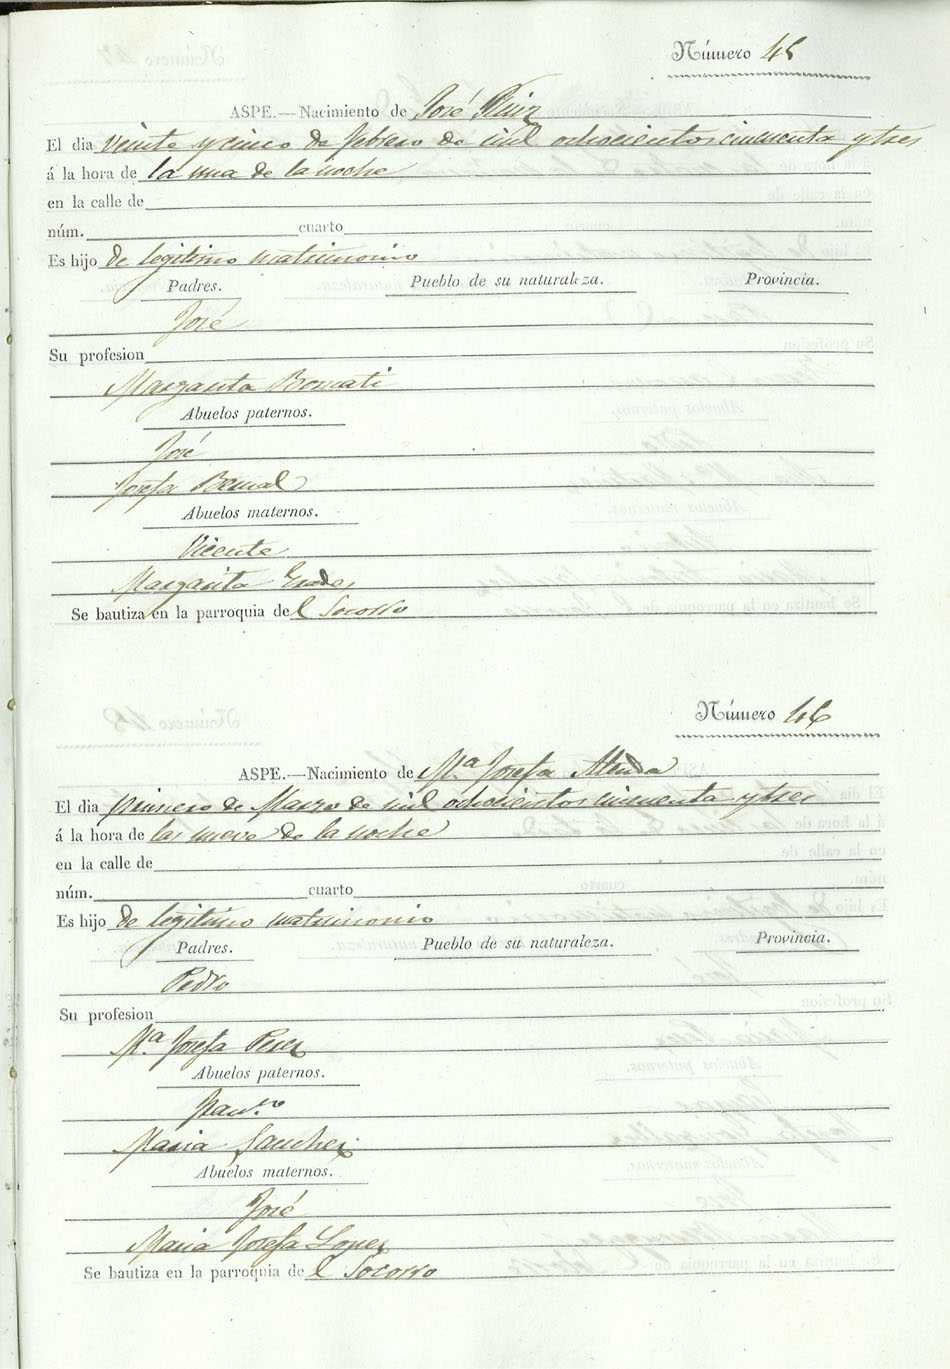 Número 45
ASPE.—Nacimiento de José Ruiz
El dia veinte y cinco de febrero de mil ochocientos cincuenta y tres
á la hora de la una de la noche
en la calle de
núm. cuarto
Es hijo de legitimo matrimonio
Padres. Pueblo de su naturaleza. Provincia.
José
Su profesion
Margarita Bomati
Abuelos paternos.
José
Josefa Bernal
Abuelos maternos.
Vicente
Margarita
Se bautiza en la parroquia del Socorro
Número 46
ASPE.—Nacimiento de Mª Josefa
El dia primero de Marzo de mil ochocientos cincuenta y tres
á la hora de las nueve de la noche
en la calle de
núm. cuarto
Es hijo de legitimo matrimonio
Padres. Pueblo de su naturaleza. Provincia.
Pedro
Su profesion
Mª Josefa Perez
Abuelos paternos.
Franco
Maria Sanchez
Abuelos maternos.
José
Maria Josefa Lopez
Se bautiza en la parroquia de l Socorro